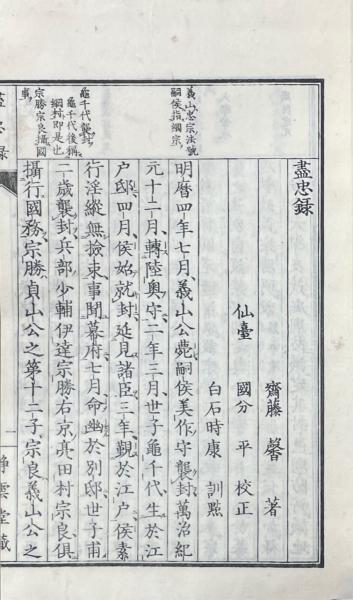 盡忠録
齋藤馨著
仙臺 國分平 校正
白石時康 訓㸃
明曆四年七月、義山公薨嗣侯美作守襲封萬治紀
元十二月、轉陸奥守、二年三月、世子龜千代、生於江
户邸四月、侯始就封延見諸臣三年、覲於江户、侯素
行淫縱無撿束事聞幕府七月、命幽於別邸世子甫
二歳襲封兵部少輔伊達宗勝右京亮田村宗良俱
攝行國務宗勝貞山公之第十二子、宗良義山公之
義山忠宗法號
嗣侯指綱宗
龜千代襲封、
龜千代後稱
綱村即是也
宗勝宗良攝國
事、
盡忠録
一
静雲堂藏